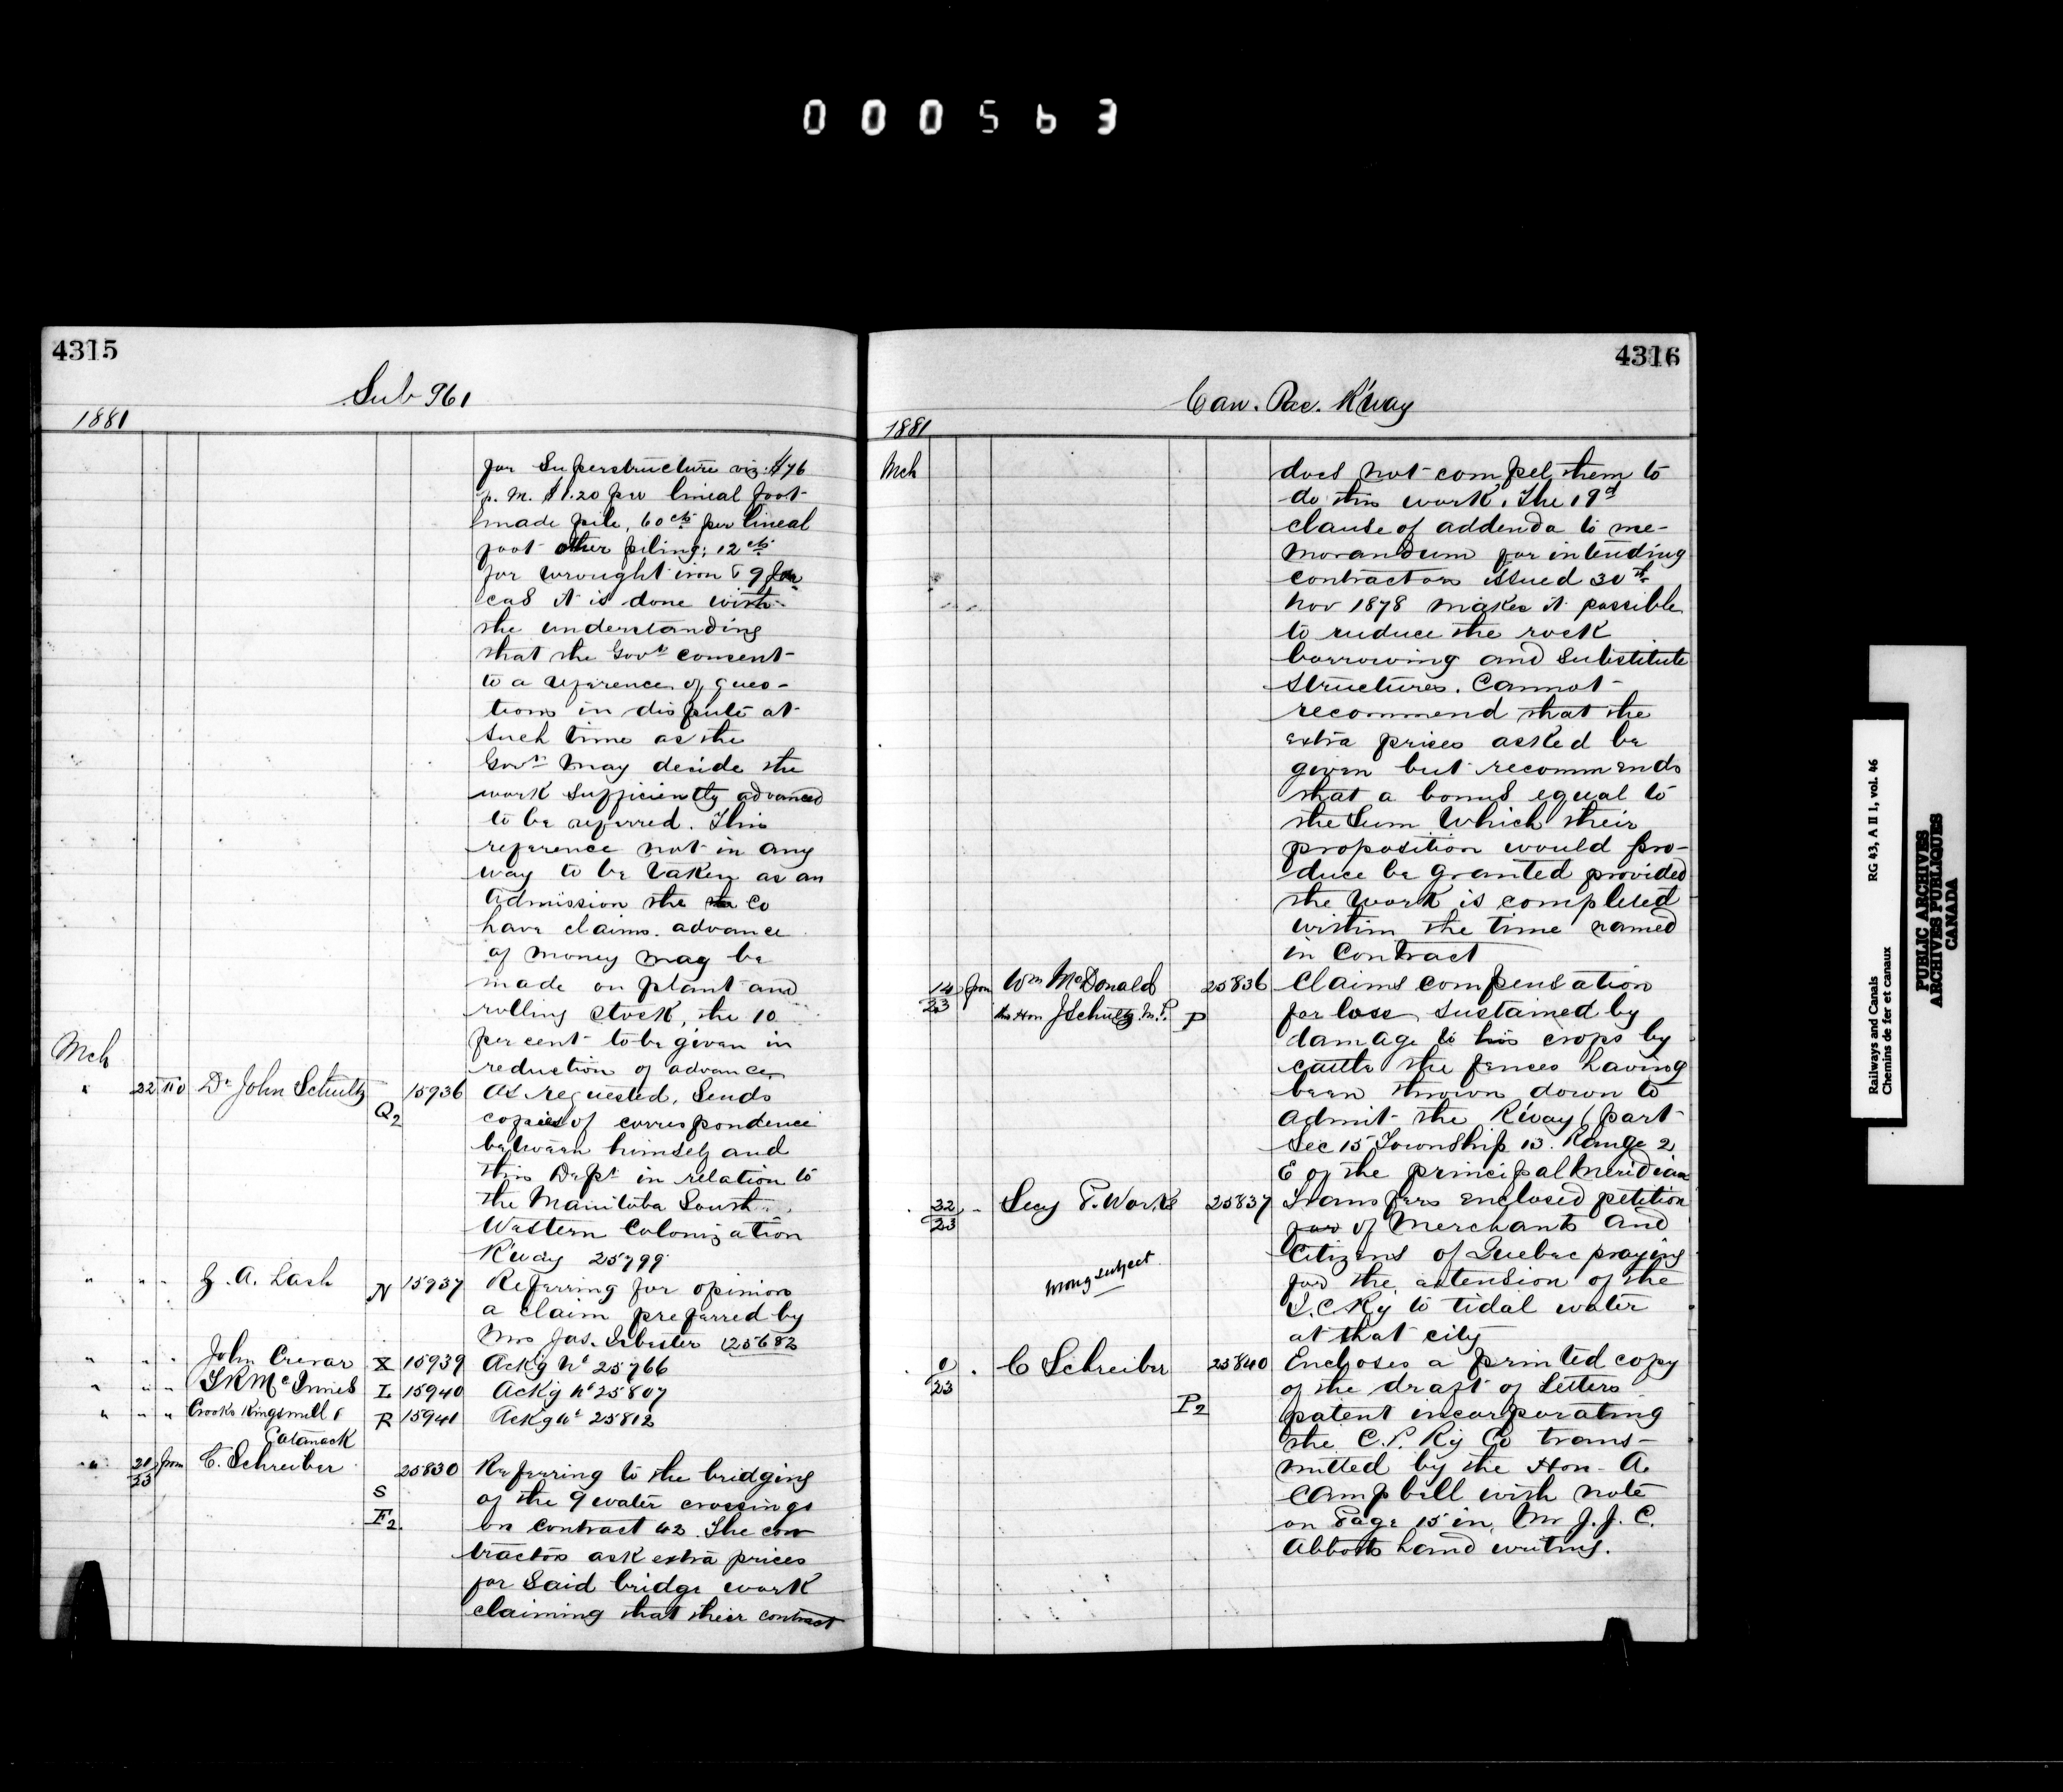 000563
4315
Sub 961
1881
for Superstructure viz. $76
p. m. $1.20 per lineal foot
made pile, 60 cts per lineal
foot other piling; 12 cts
for wrought iron & 9 for
cas it is done with
the understanding
that the Govt consent
to a reference of ques-
tions in dispute at
such time as the
Govt may decide the
work sufficiently advanced
to be referred. This
reference not in any
way to be taken as an
admission the the Co
have claims. advance
of money may be
made on plant and
rolling stock, the 10
per cent to be given in
reduction of advance
Mch
" 22 to Dr John Schultz Q2 15936 As requested, Sends
copies of correspondence
between himself and
this Dept in relation to
the Manitoba South
Western Colonization
R'way 25799
" " " Z. A. Lash N 15937 Referring for opinion
a claim preferred by
Mrs Jas. Isbester 25682
" " " John Crerar X 15939 Ackg Nt 25766
" " " McInnes L 15940 Ackg Nt 25807
" " " Crooks Kingsmill & R 15941 Ackg Nt 25812
Catanack
" 21/23 from C. Schreiber S F2 25830 Referring to the bridging
of the 9 water crossings
on Contract 42. The con
tractors ask extra prices
for said bridge work
claiming that their contract
4316
Can. Pac. R'way
1881
Mch
does not compel them to
do this work. The 19th
clause of addenda to me-
morandum for intending
contractors issued 30th
Nov 1878 makes it possible
to reduce the rock
borrowing and substitute
structures. Cannot
recommend that the
extra prices asked be
given but recommends
that a bonus equal to
the Sum Which their
proposition would pro-
duce be granted provided
the work is completed
within the time named
in Contract
14/23 from Wm McDonald 25836 Claims compensation
thro Hon J Schultz M.P. P for loss sustained by
damage to his crops by
cattle the fences having
been thrown down to
admit the R'way (part
Sec 15 Township 13. Range 2
E of the principal Meridian
22/23 " Secy P. Works 25837 Transfers enclosed petition
for of Merchants and
Citizens of Quebec praying
for the extension of the
I. C Ry to tidal water
at that city
wrong subject
0/23 " C Schreiber P2 25840 Encloses a printed copy
of the draft of Letters
patent incorporating
the C. P. Ry Co trans-
mitted by the Hon. A.
Campbell with note
on Page 15 in, Mr J. J. C.
Abbotts hand writing.
Railways and Canals
Chemins de fer et canaux
RG 43, A II 1, vol. 46
PUBLIC ARCHIVES
ARCHIVES PUBLIQUES
CANADA